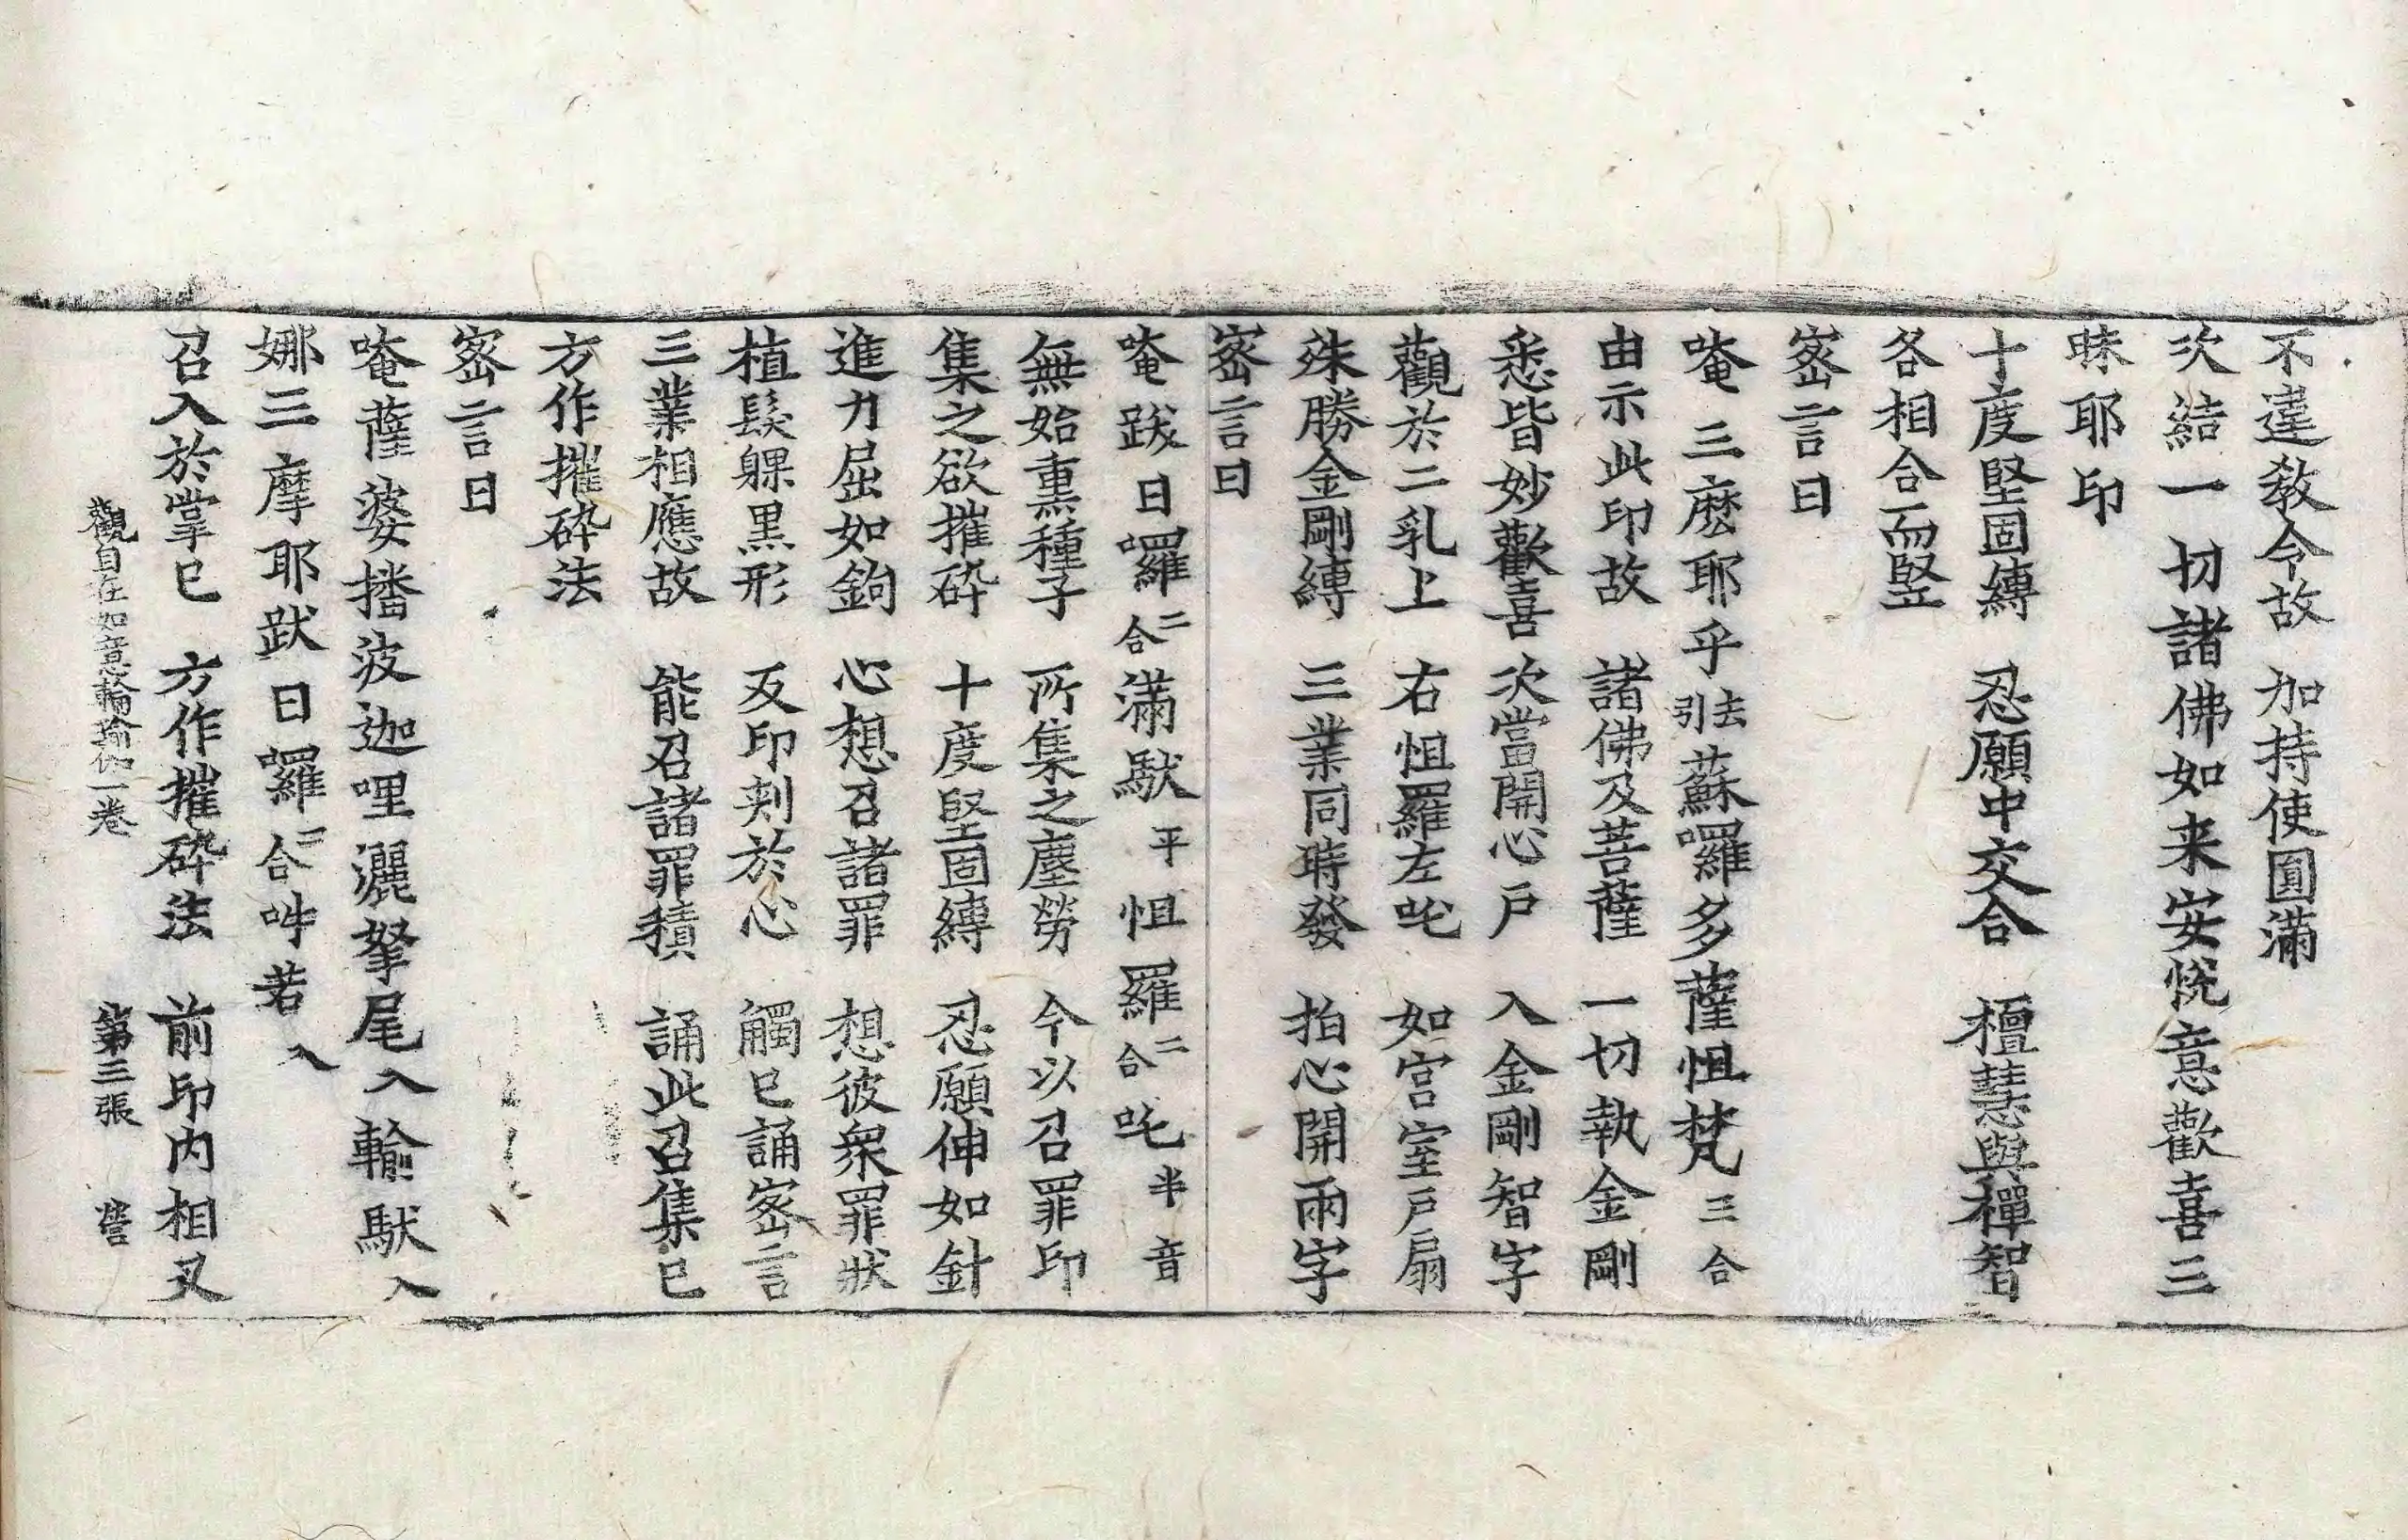 不違教令故　加持使圓滿
次結一切諸佛如来安悅意歡喜三
昧耶印
十度堅固縛　忍願中交合　檀慧與禪智
各相合而竪
密言曰
唵三麼耶乎引去蘇囉多薩怛梵三合
由示此印故　諸佛及菩薩　一切執金剛
悉皆妙歡喜　次當開心戶　入金剛智字
觀於二乳上　右怛羅左吒　如宮室戶扇
殊勝金剛縛　三業同時發　拍心開兩字
密言曰
唵跋日囉二合滿馱平怛羅二合吒半音
無始熏種子　所集之塵勞　今以召罪印
集之欲摧碎　十度堅固縛　忍願伸如針
進力屈如鉤　心想召諸罪　想彼衆罪狀
植髮躶黑形　反印刾於心　觸已誦密言
三業相應故　能召諸罪積　誦此召集已
方作摧碎法
密言曰
唵薩婆播波迦哩灑拏尾入輸馱入
娜三摩耶跋日囉二合吽若入
召入於掌已　方作摧碎法　前印内相叉
觀自在如意輪瑜伽一卷　第三張　營